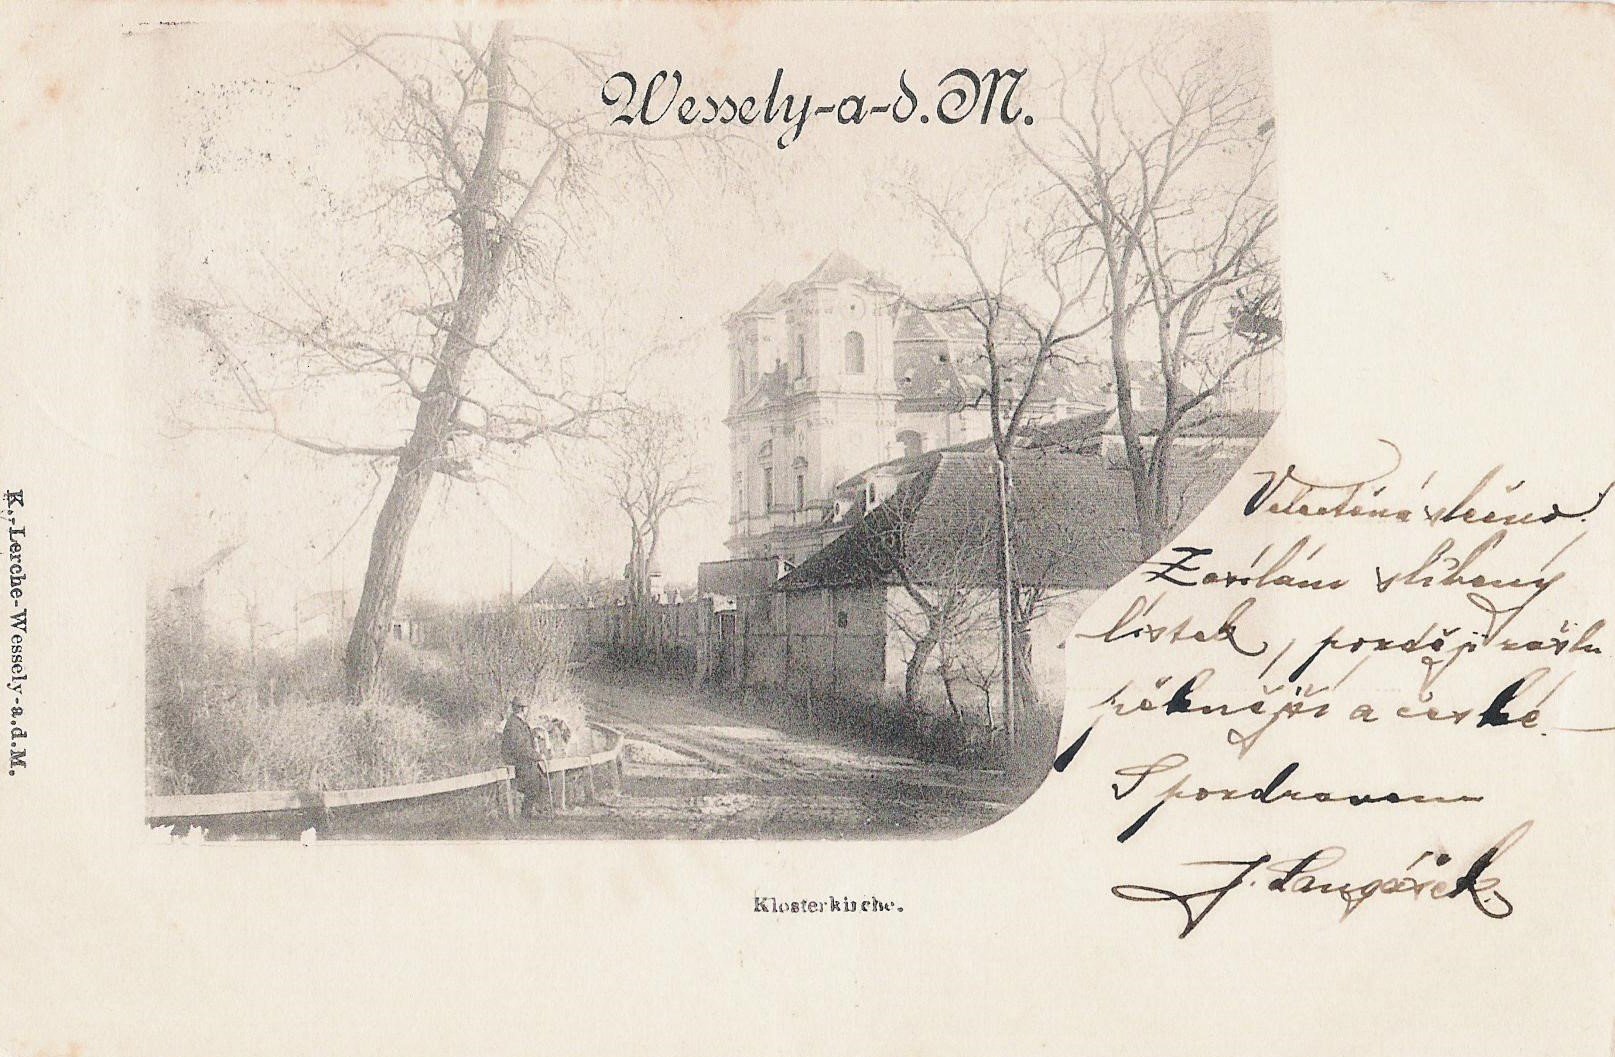 Wessely-a-d.M.
Velectěná slečno!
Zasílám slíbený
lístek, později zašlu
pěknější a české.
S pozdravem
J.
Klosterkirche.
K. Lerche-Wessely-a.d.M.